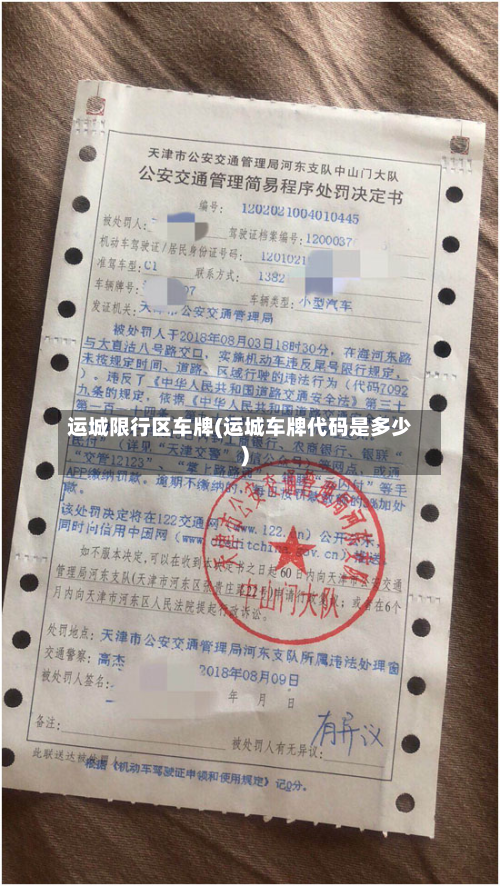 天津市公安交通管理局河东支队中山门大队
公安交通管理简易程序处罚决定书
编号: 1202021004010445
被处罚人: 驾驶证档案编号:1200037
机动车驾驶证/居民身份证号码: 1201021
准驾车型:C1 联系方式: 1382
车辆牌号: 07 车辆类型:小型汽车
发证机关:天津市公安交通管理局
被处罚人于2018年08月03日18时30分, 在海河东路
与大直沽八号路交口, 实施机动车违反尾号限行规定,
未按规定时间、道路、区域行驶的违法行为(代码7092
), 违反了《中华人民共和国道路交通安全法》第三十
九条的规定, 依据《中华人民共和国道路交通安全法》
运城限行区车牌(运城车牌代码是多少
)
该处罚决定将在122交通网(www.122.cn)公开公示,
如不服本决定, 可以在收到本决定书之日起60日内向天津市
月内向天津市河东区人民法院提起行政诉讼。
天津市公安交通管理局河东支队
中山门大队
处罚地点:天津市公安交通管理局河东支队所属违法处理窗
交通警察: 高杰
2018年08月09日
被处罚人签名:
年 月 日
备注: 被处罚人有无异议: 有异议
此联送达被处罚人
根据《机动车驾驶证申领和使用规定》记0分.